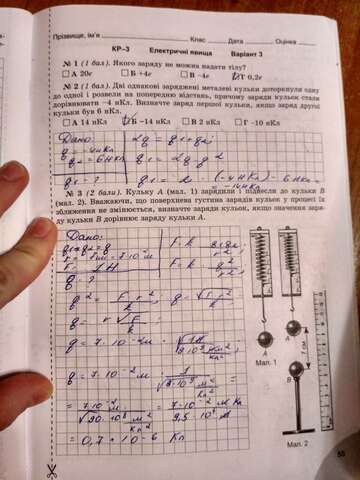 Прізвище, ім'я Клас Дата Оцінка
КР–3 Електричні явища Варіант 3
№ 1 (1 бал). Якого заряду не можна надати тілу?
А 20e Б +4e В −4e Г 0,2e
№ 2 (2 бали). Дві однакові заряджені металеві кульки доторкнули одну
до одної і розвели на попередню відстань, причому заряди кульок стали
дорівнювати −4 нКл. Визначте заряд першої кульки, якщо заряд другої
кульки був 6 нКл.
А 14 нКл Б −14 нКл В 2 нКл Г −10 нКл
Дано: 2q = q1+q2;
q = −4нКл
q2 = 6нКл q1 = 2q−q2
q1 − ? q1 = 2·(−4нКл) − 6нКл =
= −14нКл
№ 3 (2 бали). Кульку А (мал. 1) зарядили і піднесли до кульки В
(мал. 2). Вважаючи, що поверхнева густина зарядів кульок у процесі їх
зближення не змінюється, визначте заряди кульок, якщо значення заря-
ду кульки В дорівнює заряду кульки А.
Дано:
q1=q2=q
r = 7см = 7·10⁻²м
F = 1Н
q − ?
F = k q1q2/r²;
F = k q²/r²
q² = F·r²/k; q = √(F·r²/k)
q = r √(F/k)
q = 7·10⁻²м · √(1Н/(9·10⁹ Н·м²/Кл²))
q = 7·10⁻² м · 1/√(9·10⁹ м²/Кл²) =
= 7·10⁻² м/√(90·10⁸ м²/Кл²) = 7·10⁻² м Кл/(9,5·10⁴ м)
= 0,7·10⁻⁶ Кл
A
Мал. 1
A
7 см
B
Мал. 2